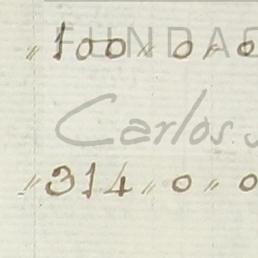 〃 100 〃 0 〃 0
FUNDAC
Carlos S
〃 314 〃 0 〃 0